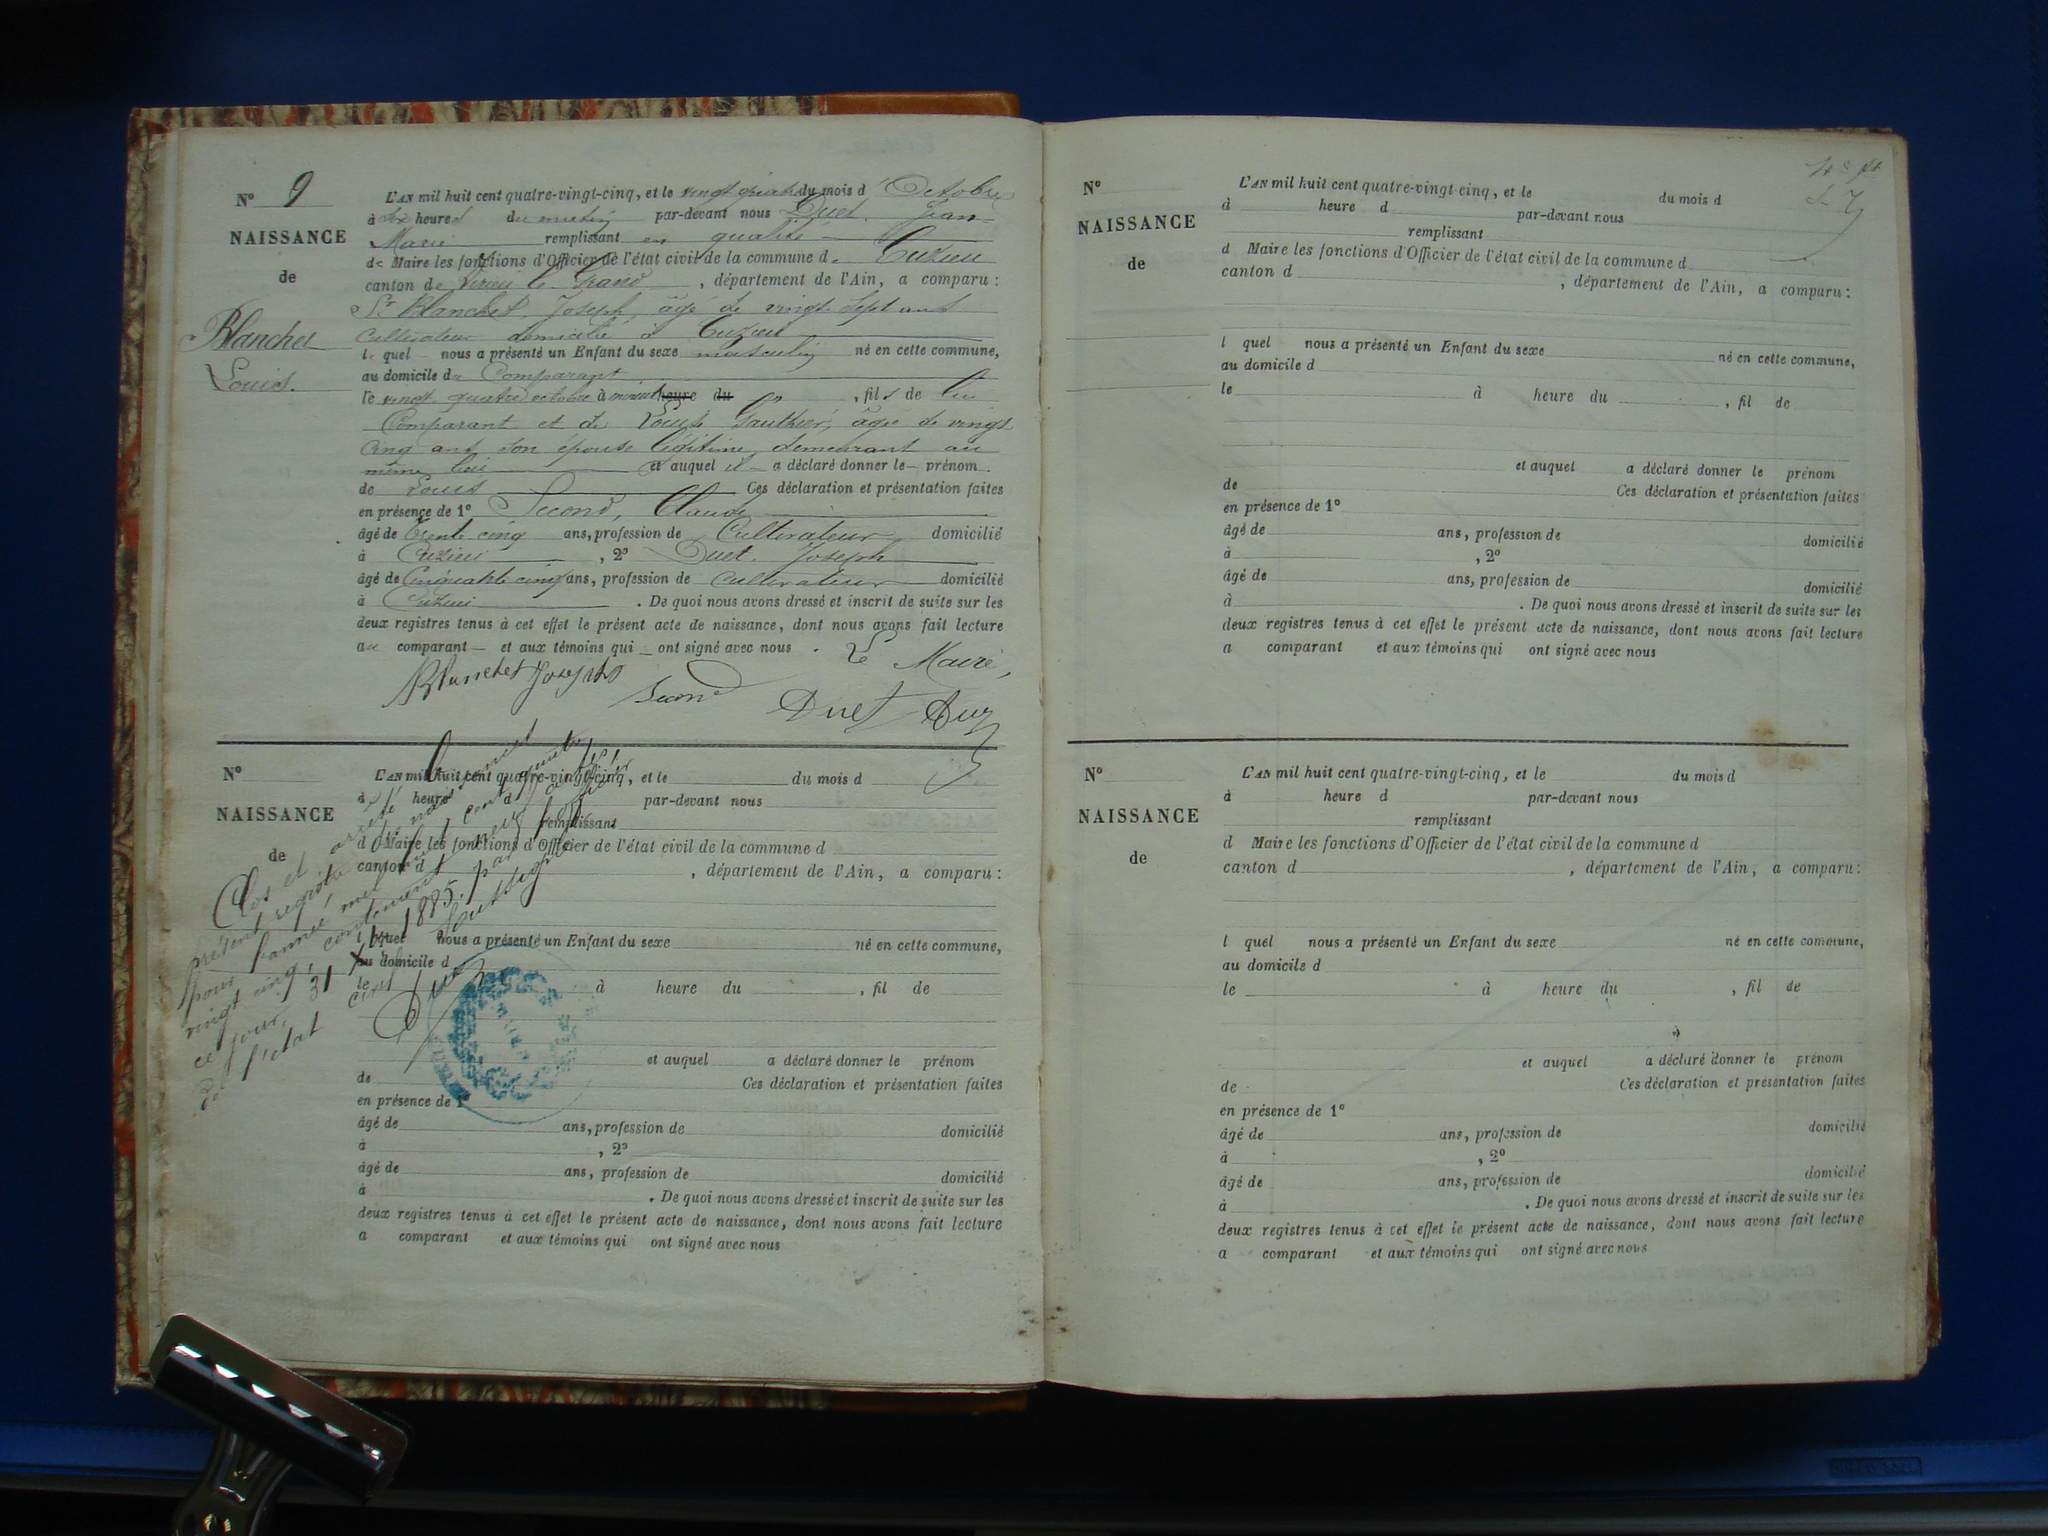 N° 9
NAISSANCE
de
Blanchet
Louis.
L'AN mil huit cent quatre-vingt-cinq, et le vingt quatre du mois d'Octobre
à dix heures du matin par-devant nous Duet, Jean
Marie remplissant en qualité
de Maire les fonctions d'Officier de l'état civil de la commune de Cuzieu
canton de Virieu le Grand, département de l'Ain, a comparu:
Sr Blanchet, Joseph, âgé de vingt sept ans
cultivateur domicilié à Cuzieu
lequel nous a présenté un Enfant du sexe masculin né en cette commune,
au domicile du Comparant
le vingt quatre octobre à minuit heure du , fils de lui
Comparant et de Louise Gauthier, âgée de vingt
cinq ans son épouse légitime, demeurant au
même lieu et auquel il a déclaré donner le prénom
de Louis Ces déclaration et présentation faites
en présence de 1° Second, Claude
âgé de trente cinq ans, profession de Cultivateur domicilié
à Cuzieu, 2° Duet, Joseph
âgé de Cinquante cinq ans, profession de cultivateur domicilié
à Cuzieu. De quoi nous avons dressé et inscrit de suite sur les
deux registres tenus à cet effet le présent acte de naissance, dont nous avons fait lecture
au comparant et aux témoins qui ont signé avec nous. Le Maire,
Blanchet Joseph Second Duet
N°
NAISSANCE
de
L'AN mil huit cent quatre-vingt-cinq, et le du mois d
à heure d par-devant nous
remplissant
d Maire les fonctions d'Officier de l'état civil de la commune d
canton d , département de l'Ain, a comparu:
l quel nous a présenté un Enfant du sexe né en cette commune,
au domicile d
le à heure du , fil de
et auquel a déclaré donner le prénom
de Ces déclaration et présentation faites
en présence de 1°
âgé de ans, profession de domicilié
à , 2°
âgé de ans, profession de domicilié
à . De quoi nous avons dressé et inscrit de suite sur les
deux registres tenus à cet effet le présent acte de naissance, dont nous avons fait lecture
a comparant et aux témoins qui ont signé avec nous
Clos et arrêté le
présent registre de naissances
pour l'année mil huit cent quatre
vingt cinq, contenant neuf actes,
ce jour, 31 Xbre 1885, par l'officier
de l'état civil soussigné
N°
NAISSANCE
de
L'AN mil huit cent quatre-vingt-cinq, et le du mois d
à heure d par-devant nous
remplissant
d Maire les fonctions d'Officier de l'état civil de la commune d
canton d , département de l'Ain, a comparu:
l quel nous a présenté un Enfant du sexe né en cette commune,
au domicile d
le à heure du , fil de
et auquel a déclaré donner le prénom
de Ces déclaration et présentation faites
en présence de 1°
âgé de ans, profession de domicilié
à , 2°
âgé de ans, profession de domicilié
à . De quoi nous avons dressé et inscrit de suite sur les
deux registres tenus à cet effet le présent acte de naissance, dont nous avons fait lecture
a comparant et aux témoins qui ont signé avec nous
N°
NAISSANCE
de
L'AN mil huit cent quatre-vingt-cinq, et le du mois d
à heure d par-devant nous
remplissant
d Maire les fonctions d'Officier de l'état civil de la commune d
canton d , département de l'Ain, a comparu:
l quel nous a présenté un Enfant du sexe né en cette commune,
au domicile d
le à heure du , fil de
et auquel a déclaré donner le prénom
de Ces déclaration et présentation faites
en présence de 1°
âgé de ans, profession de domicilié
à , 2°
âgé de ans, profession de domicilié
à . De quoi nous avons dressé et inscrit de suite sur les
deux registres tenus à cet effet le présent acte de naissance, dont nous avons fait lecture
a comparant et aux témoins qui ont signé avec nous